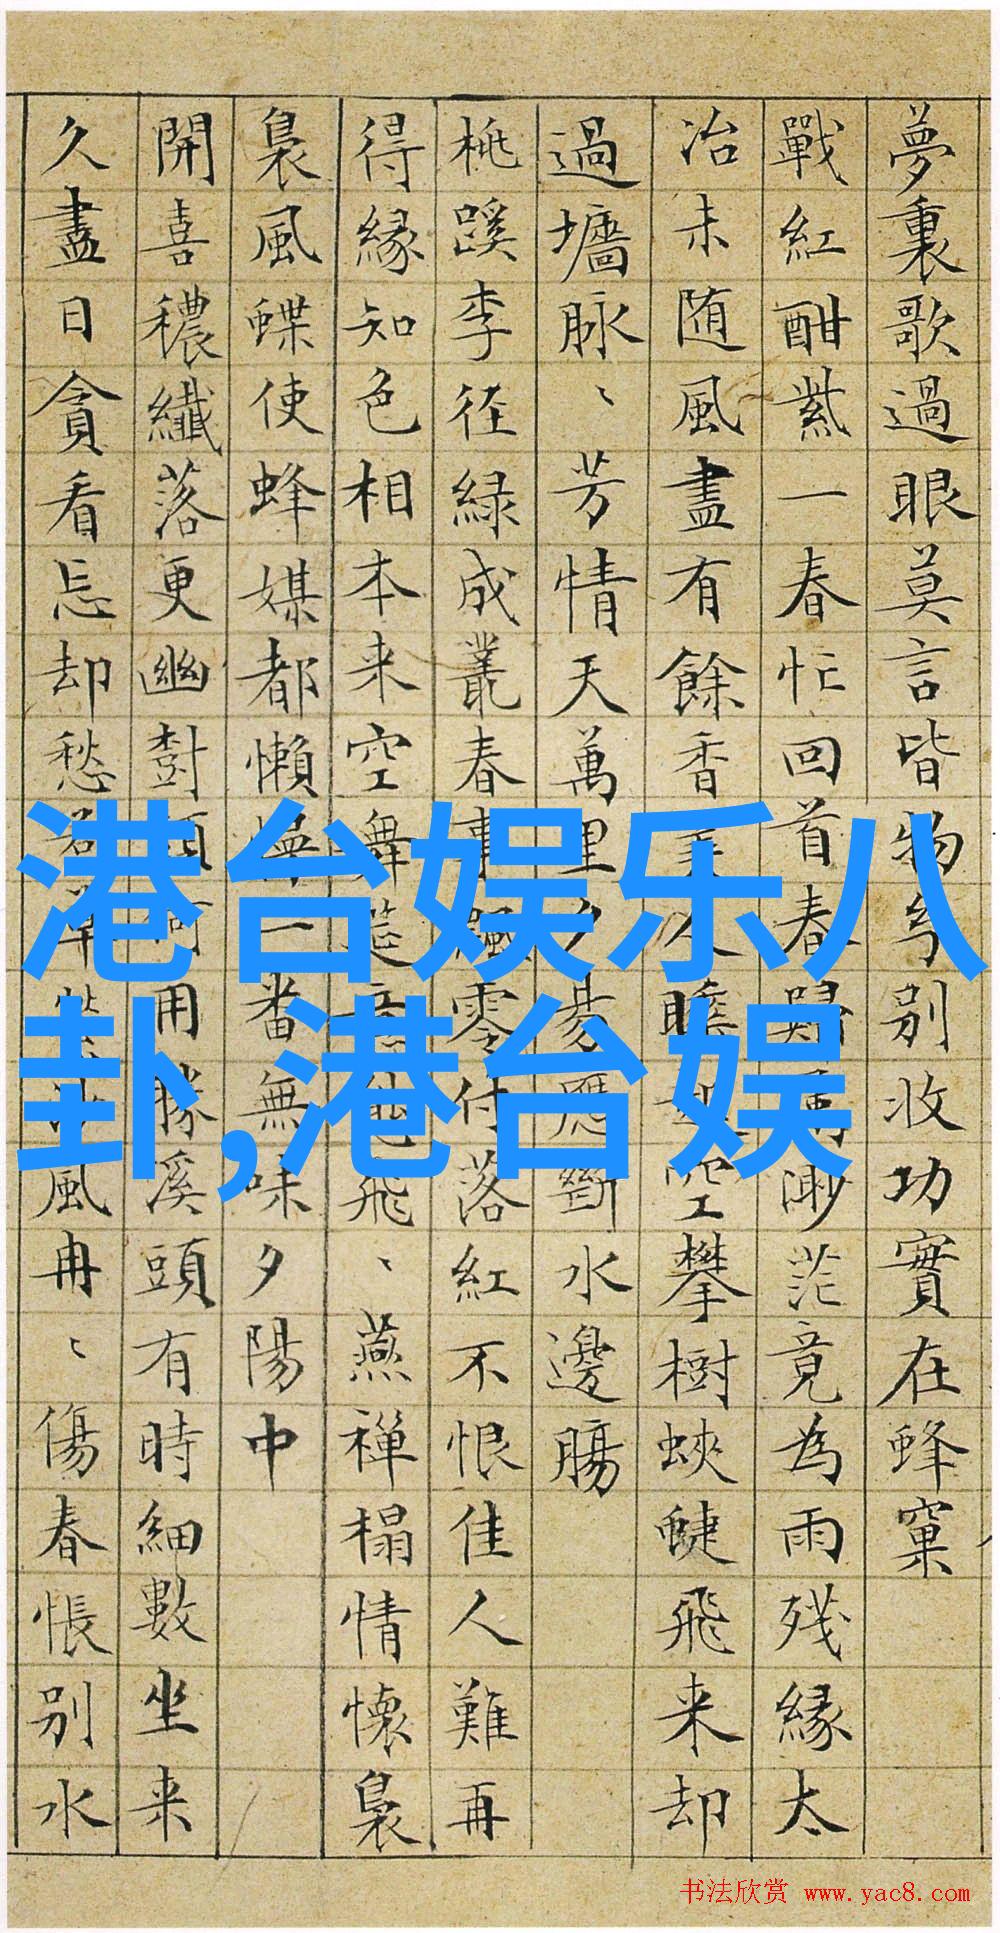 夢裏歌過眼莫言皆物別收功實在蜂窠
戰紅酣紫一春忙回首春歸渺茫竟為雨殘緣太
冶未随風盡有餘香人瞻空攀樹蛺蝶飛来却
過墻脉、芳情天萬里夕陽應斷水邊腸
桃蹊李径緑成叢春事飄零付落紅不恨佳人難再
得緣知色相本来空舞筵意飛、燕禪榻情懷裊
裊風蝶使蜂媒都懶一番無味夕陽中
開喜穠纖落更幽樹頭何用勝溪頭有時細數坐来
久盡日貪看忘却愁草風冉、傷春悵别水
港台娱乐八
卦,港台娱
书法欣赏 www.yac8.com